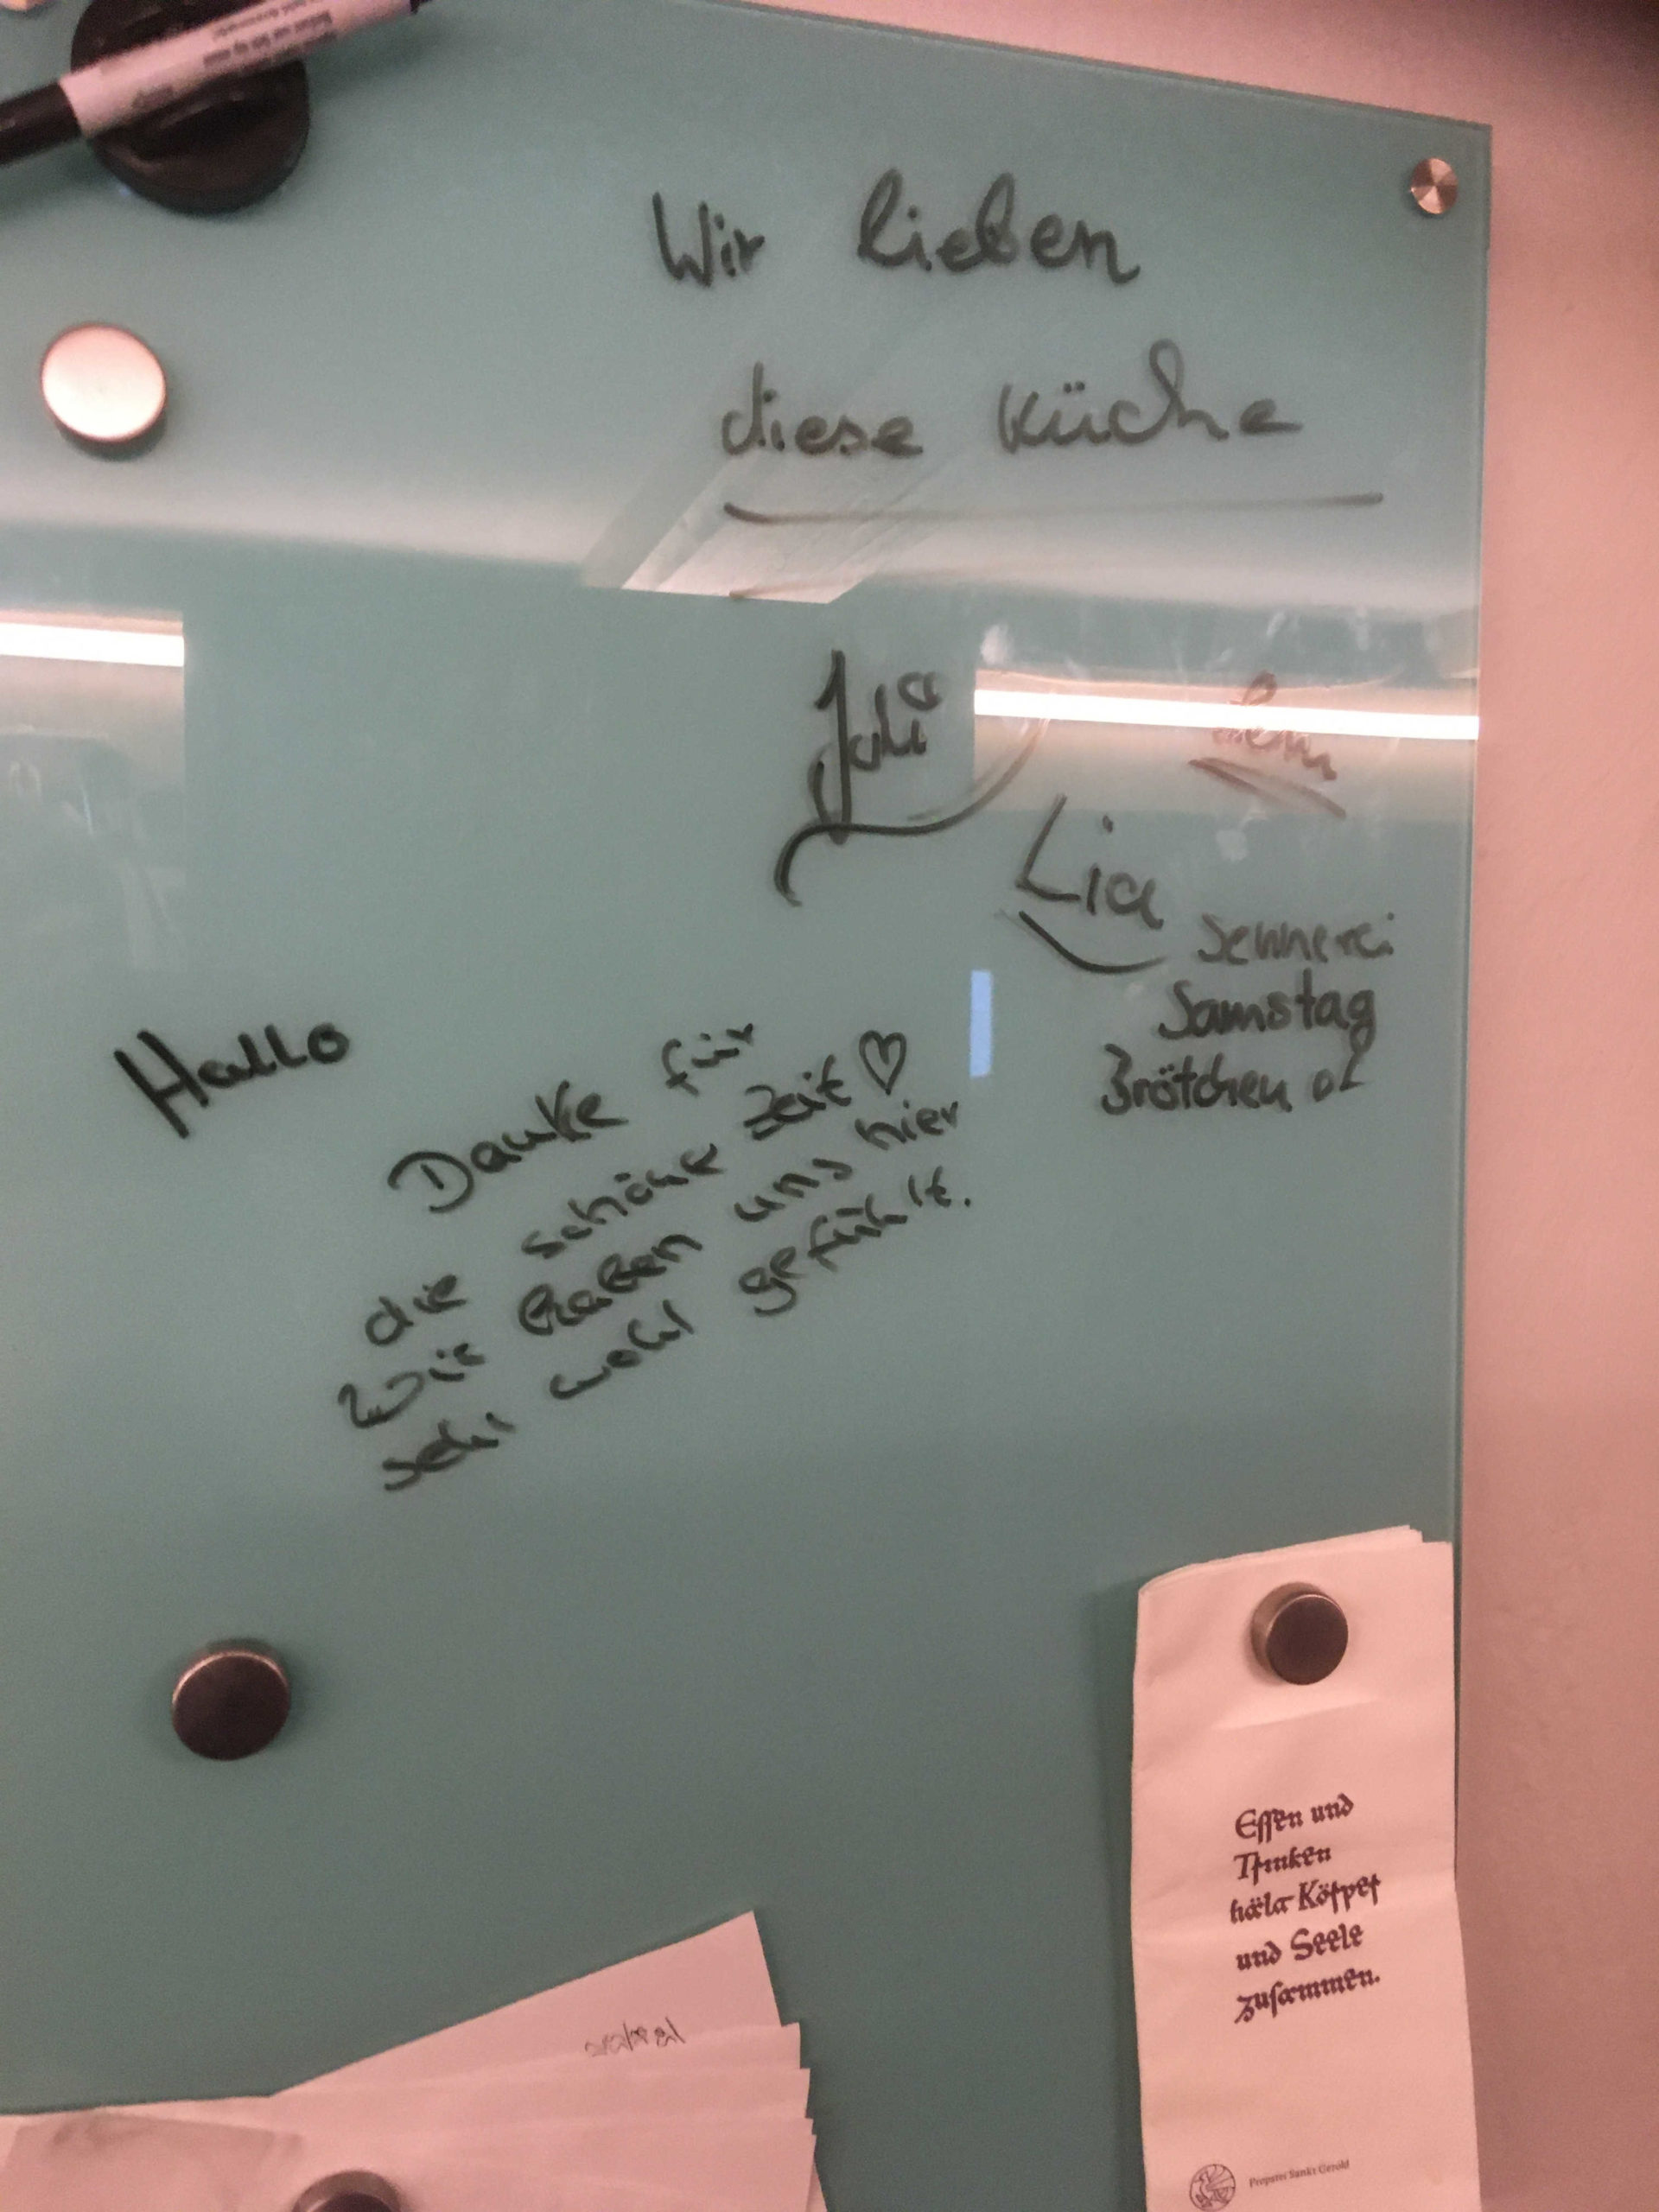 Wir lieben
diese Küche
Julia
Lia
Sennerei
Samstag
Brötchen
Hallo
Danke für
die schöne Zeit ♡
Wir haben uns hier
sehr wohl gefühlt.
Essen und
Trinken
hält Körper
und Seele
zusammen.
Propstei Sankt Gerold